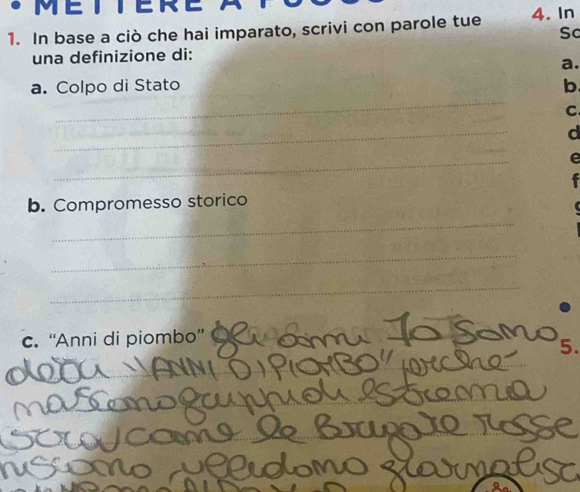 METTERE A
1. In base a ciò che hai imparato, scrivi con parole tue
una definizione di:
a. Colpo di Stato
b. Compromesso storico
c. "Anni di piombo" gli anni 70 sono
detti "ANNI DI PIOMBO" perché
nascono gruppi di estrema
come le Brigate rosse
4. In
a.
b.
c.
d
e
f
5.